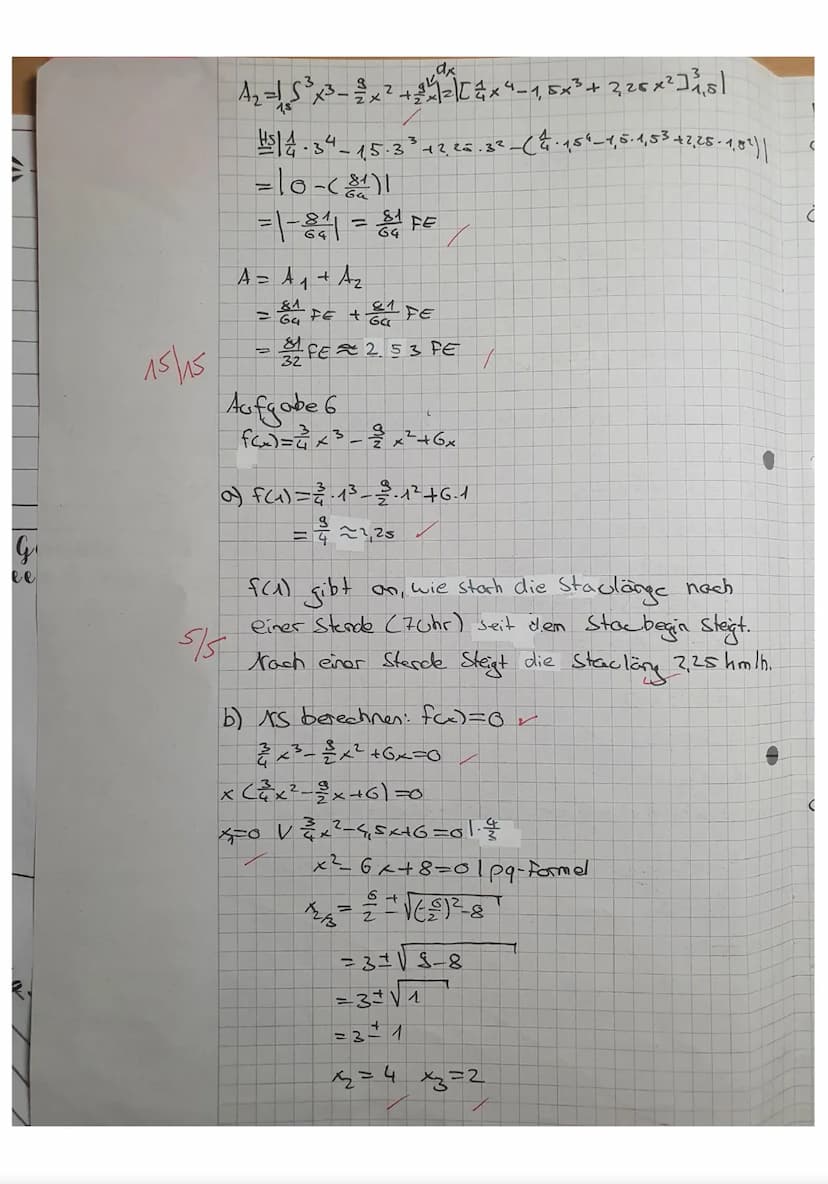 A₂=|∫₁,₅³ x³ - 9/2 x² + 9/2 x dx|=|[1/4 x⁴ - 1,5x³ + 2,25x²]³₁,₅|
HS |1/4 · 3⁴ - 1,5 · 3³ + 2,25 · 3² - (1/4 · 1,5⁴ - 1,5 · 1,5³ + 2,25 · 1,5²)|
= |0 - (81/64)|
= |-81/64| = 81/64 FE
A = A₁ + A₂
= 81/64 FE + 81/64 FE
= 81/32 FE ≈ 2.53 FE
15/15
Aufgabe 6
f(x)= 3/4 x³ - 9/2 x² + 6x
a) f(1) = 3/4 · 1³ - 9/2 · 1² + 6 · 1
= 9/4 ≈ 2,25
f(1) gibt an, wie stark die Staulänge nach
einer Stunde (7Uhr) seit dem Staubegin steigt.
5/5
Nach einer Stunde steigt die Stauläng 2,25 km/h.
b) NS berechnen: f(x)=0
3/4 x³ - 9/2 x² + 6x = 0
x (3/4 x² - 9/2 x + 6) = 0
x₁=0 ∨ 3/4 x² - 4,5x + 6 = 0 | · 4/3
x² - 6x + 8 = 0 | pq-Formel
x₂/₃ = 6/2 ± √(-6/2)² - 8
= 3 ± √9-8
= 3 ± √1
= 3 ± 1
x₂ = 4 x₃ = 2
G
ee